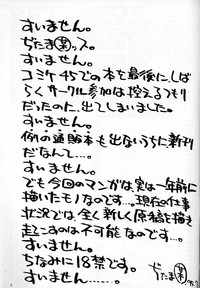 すいません。
ぢたま㊎っス。
すいません。
コミケ45での本を最後に、しば
らくサークル参加は控えるつもり
だったのに、出てしまいました。
すいません。
例の通販本も出ないうちに新刊
だなんて…。
すいません。
でも今回のマンガは、実は一年前に
描いたモノなのです…。現在の仕事
状況では、全く新しく原稿を描き
起こすのは不可能なのです…。
すいません。
ちなみに18禁です。
すいません……。
ぢたま